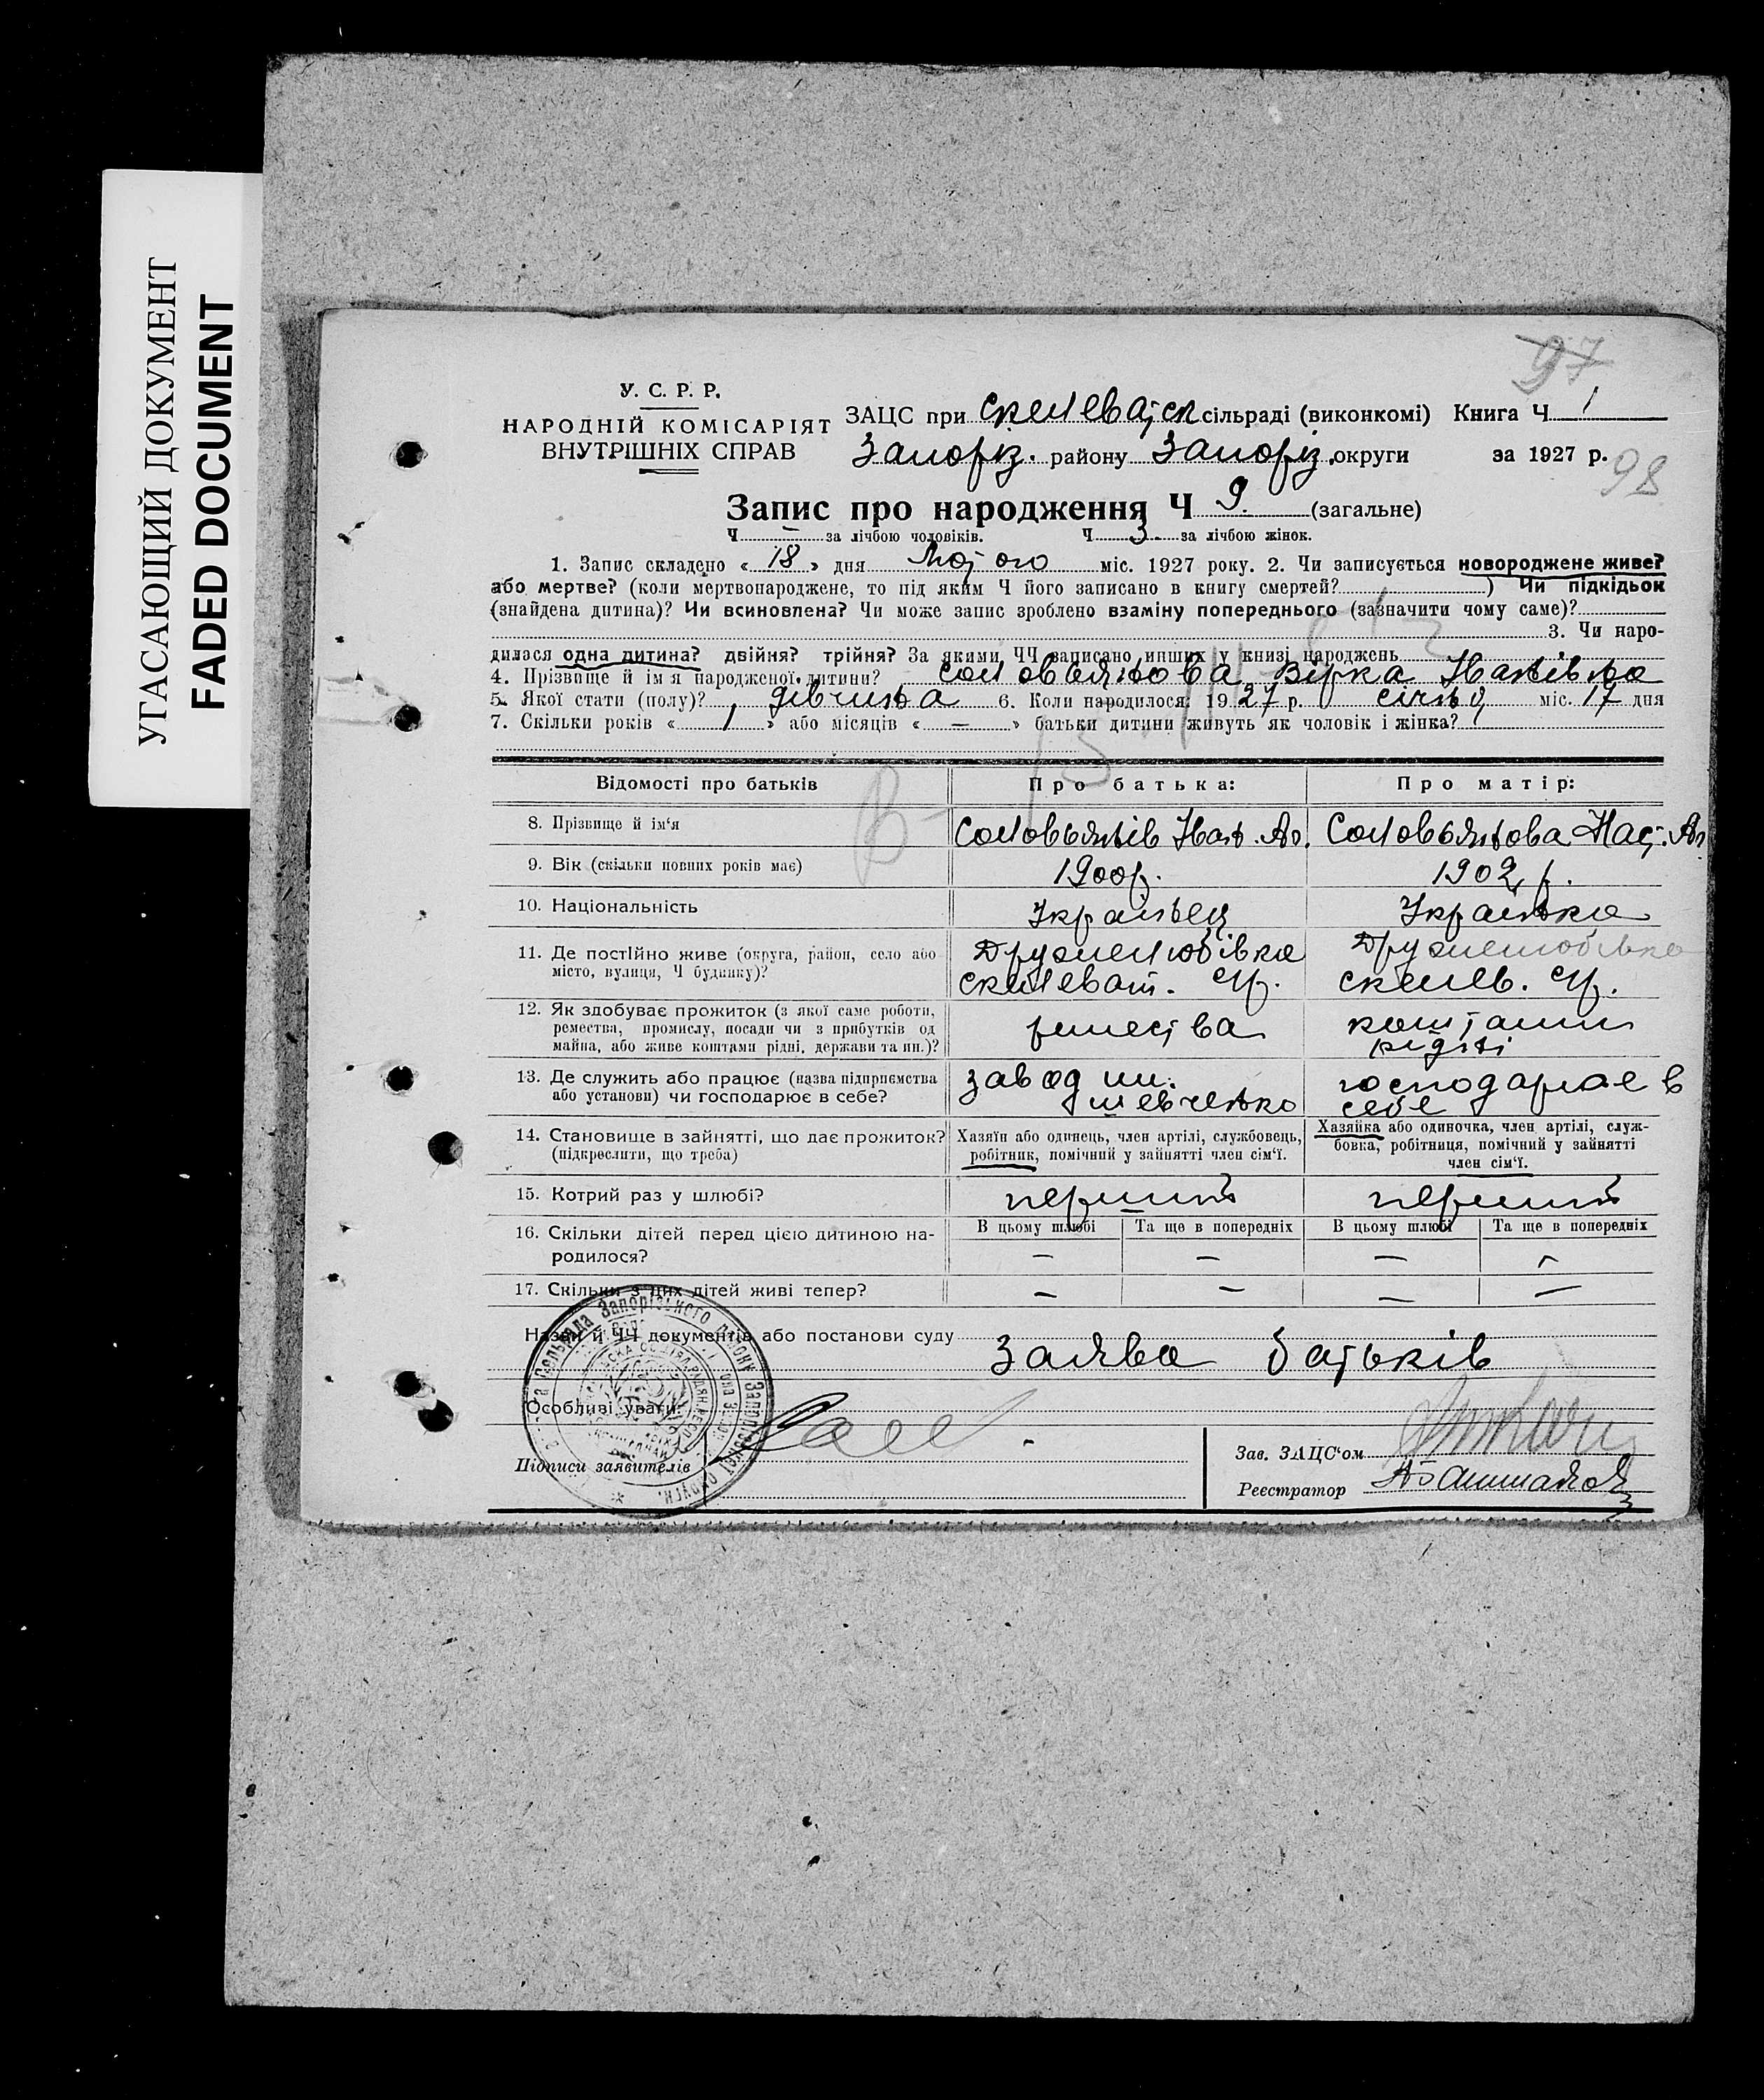 УГАСАЮЩИЙ ДОКУМЕНТ
FADED DOCUMENT
97
У. С. Р. Р.
НАРОДНІЙ КОМІСАРІЯТ
ВНУТРІШНІХ СПРАВ
ЗАЦС при скелеватск сільраді (виконкомі) Книга Ч 1
Запоріз. району Запоріз. округи за 1927 р.
98
Запис про народження Ч 9. (загальне)
Ч — за лічбою чоловіків. Ч 3 за лічбою жінок.
1. Запис складено « 18 » дня Лютого міс. 1927 року. 2. Чи записується новороджене живе?
або мертве? (коли мертвонароджене, то під яким Ч його записано в книгу смертей? ) Чи підкідьок
(знайдена дитина)? Чи всиновлена? Чи може запис зроблено взаміну попереднього (зазначити чому саме)?
3. Чи наро-
дилася одна дитина? двійня? трійня? За якими ЧЧ записано инших у книзі народжень
4. Прізвище й ім'я народженої дитини? Соловьянова Вірка Іванівна
5. Якої стати (полу)? дівчина 6. Коли народилося: 1927 р. січня міс. 17 дня
7. Скільки років « 1 » або місяців « — » батьки дитини живуть як чоловік і жінка?
Відомості про батьків
Про батька:
Про матір:
8. Прізвище й ім'я
Соловьянів Іван. Ав.
Соловьянова Наст.
9. Вік (скільки повних років має)
1900 р.
1902 р.
10. Національність
Українец
Українка
11. Де постійно живе (округа, район, село або
місто, вулиця, Ч будинку)?
Дружелюбівка
скелеват. ср.
Дружелюбівка
скелев. ср.
12. Як здобуває прожиток (з якої саме роботи,
ремества, промислу, посади чи з прибутків од
майна, або живе коштами рідні, держави та ин.)?
ремества
коштами
рідні
13. Де служить або працює (назва підприємства
або установи) чи господарює в себе?
завод им.
шевченко
господарює в
себе
14. Становище в зайнятті, що дає прожиток?
(підкреслити, що треба)
Хазяїн або одинець, член артілі, службовець,
робітник, помічний у зайнятті член сім'ї.
Хазяйка або одиночка, член артілі, служ-
бовка, робітниця, помічний у зайнятті
член сім'ї.
15. Котрий раз у шлюбі?
перший
перший
16. Скільки дітей перед цією дитиною на-
родилося?
В цьому шлюбі
Та ще в попередніх
В цьому шлюбі
Та ще в попередніх
— — — —
17. Скільки з цих дітей живі тепер?
— — — —
Назви й ЧЧ документів або постанови суду
Заява батьків
Особливі уваги:
Підписи заявителів
Зав. ЗАЦС'ом
Реєстратор
сільрада Запорізького району Запорізької округи